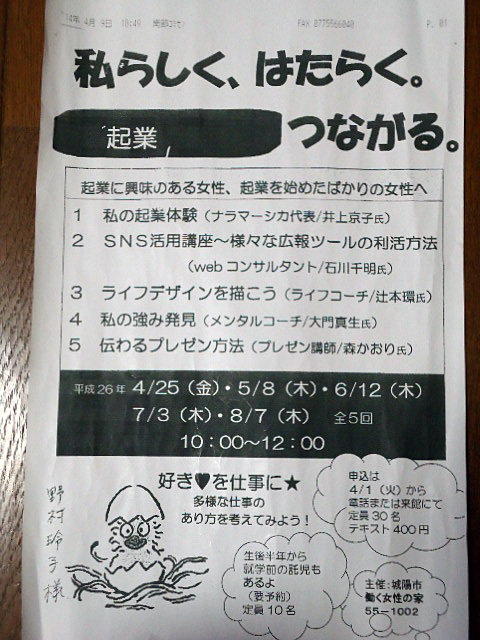 14年 4月 9日 10:49
FAX 0775566040
P. 01
私らしく、はたらく。
起業
つながる。
起業に興味のある女性、起業を始めたばかりの女性へ
1 私の起業体験（ナラマーシカ代表/井上京子氏）
2 SNS活用講座～様々な広報ツールの利活方法
（webコンサルタント/石川千明氏）
3 ライフデザインを描こう（ライフコーチ/辻本環氏）
4 私の強み発見（メンタルコーチ/大門真生氏）
5 伝わるプレゼン方法（プレゼン講師/森かおり氏）
平成26年 4/25（金）・5/8（木）・6/12（木）
7/3（木）・8/7（木） 全5回
10：00～12：00
好き♥を仕事に★
多様な仕事の
あり方を考えてみよう！
申込は
4/1（火）から
電話または来館にて
定員30名
テキスト400円
野村玲子様
生後半年から
就学前の託児も
あるよ
（要予約）
定員10名
主催：城陽市
働く女性の家
55-1002